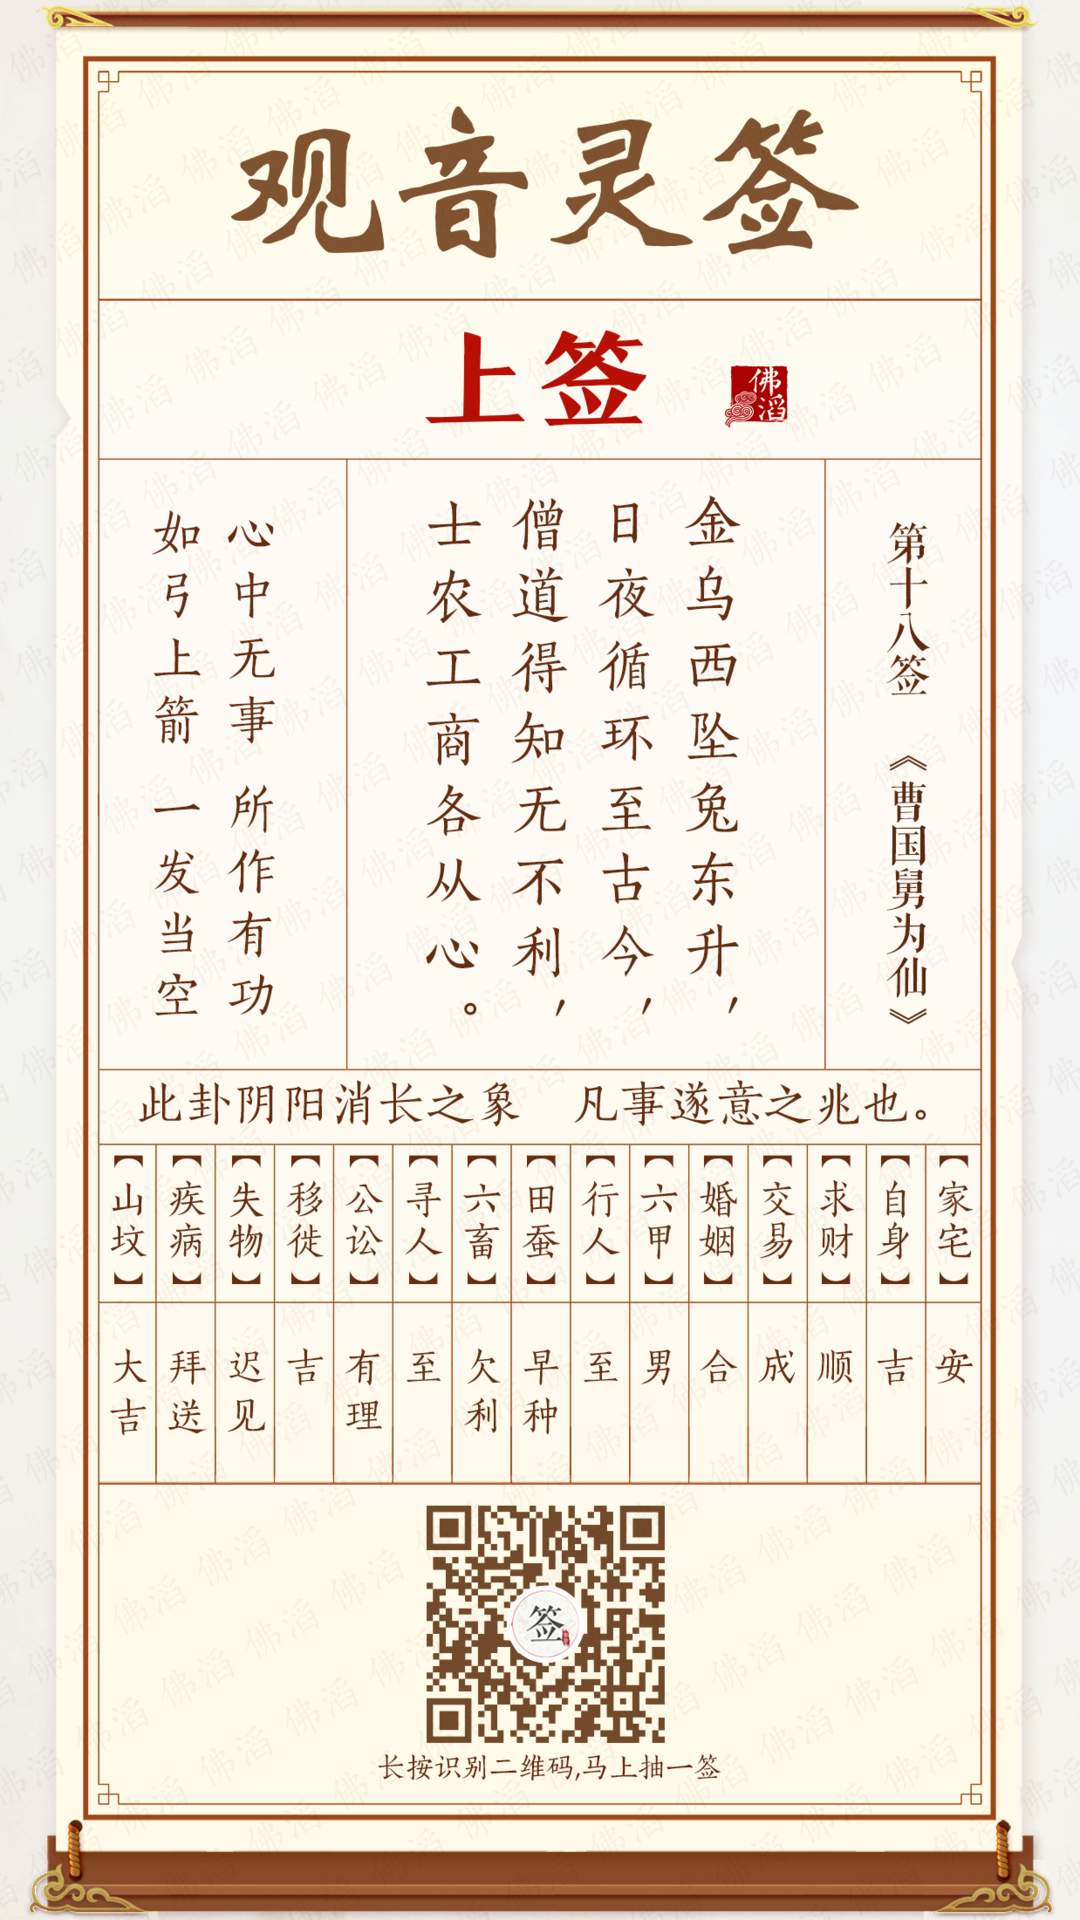 观音灵签
上签
佛滔
第十八签 《曹国舅为仙》
金乌西坠兔东升，
日夜循环至古今，
僧道得知无不利，
士农工商各从心。
心中无事 所作有功
如弓上箭 一发当空
此卦阴阳消长之象 凡事遂意之兆也。
【家宅】安
【自身】吉
【求财】顺
【交易】成
【婚姻】合
【六甲】男
【行人】至
【田蚕】早种
【六畜】欠利
【寻人】至
【公讼】有理
【移徙】吉
【失物】迟见
【疾病】拜送
【山坟】大吉
签
长按识别二维码,马上抽一签